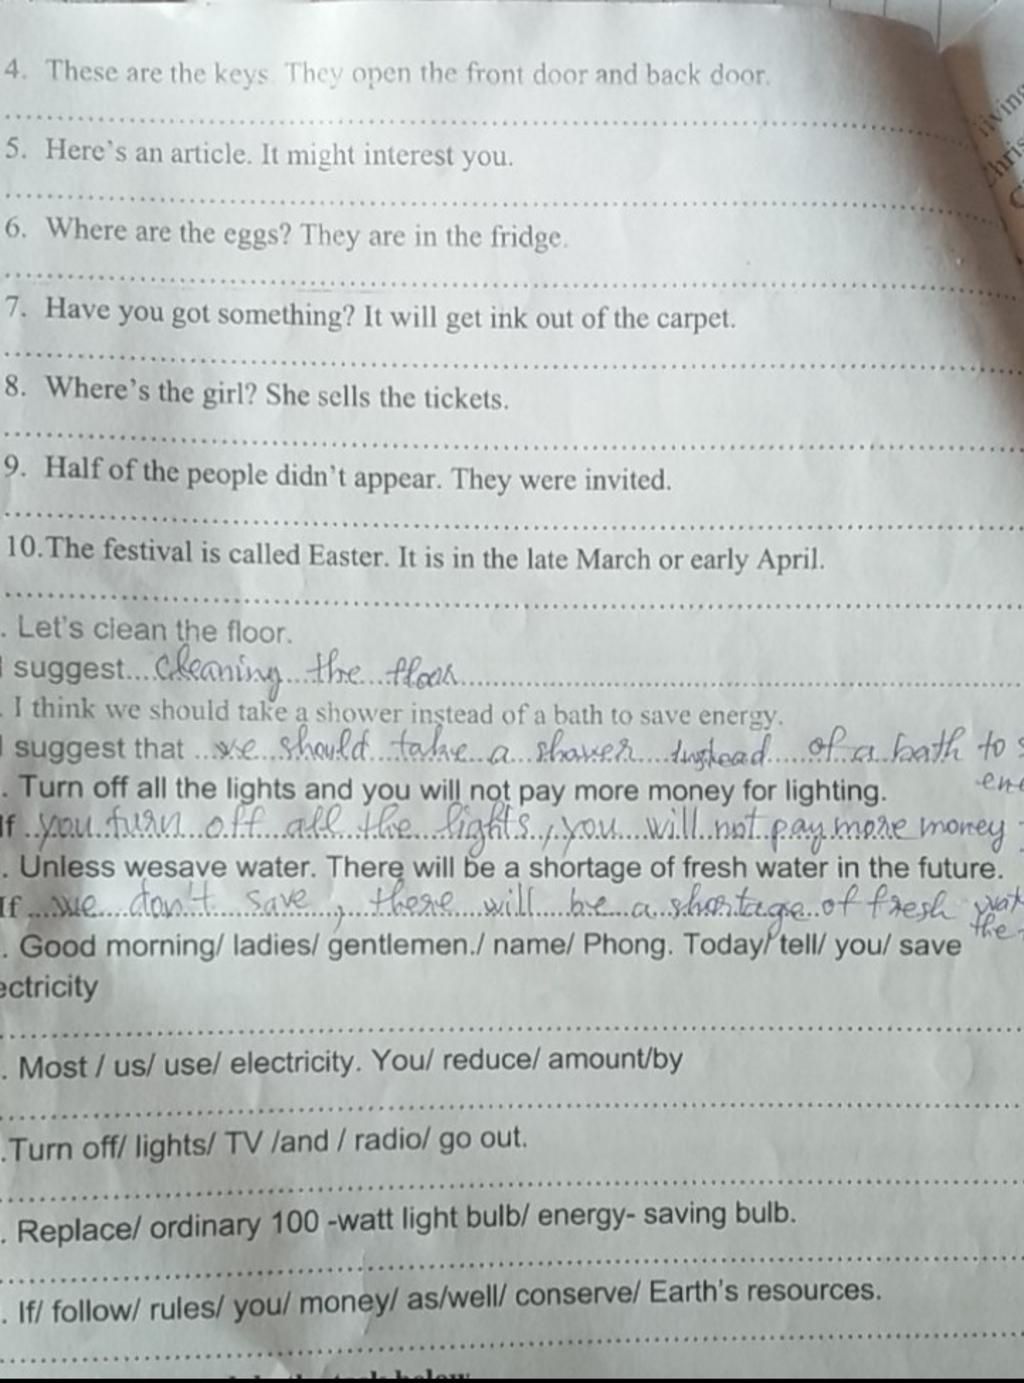 4. These are the keys. They open the front door and back door.
5. Here's an article. It might interest you.
6. Where are the eggs? They are in the fridge.
7. Have you got something? It will get ink out of the carpet.
8. Where's the girl? She sells the tickets.
9. Half of the people didn't appear. They were invited.
10.The festival is called Easter. It is in the late March or early April.
. Let's clean the floor.
I suggest... cleaning the floor
. I think we should take a shower instead of a bath to save energy.
I suggest that we should take a shower instead of a bath to
. Turn off all the lights and you will not pay more money for lighting.
If you turn off all the lights, you will not pay more money
. Unless wesave water. There will be a shortage of fresh water in the future.
If we don't save, there will be a shortage of fresh
the
. Good morning/ ladies/ gentlemen./ name/ Phong. Today/ tell/ you/ save
ectricity
. Most / us/ use/ electricity. You/ reduce/ amount/by
.Turn off/ lights/ TV /and / radio/ go out.
. Replace/ ordinary 100 -watt light bulb/ energy- saving bulb.
. If/ follow/ rules/ you/ money/ as/well/ conserve/ Earth's resources.